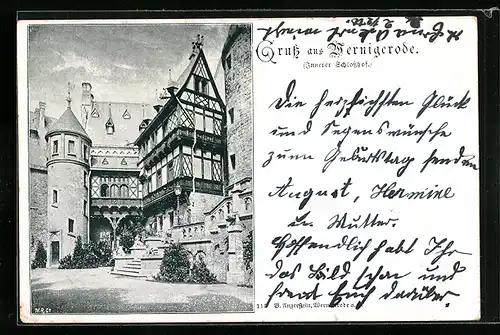 Gruß aus Wernigerode.
(Innerer Schloßhof.)
Die herzlichsten Glück
und Segenswünsche
zum Geburtstag senden
August, Hermine
u. Mutter.
Hoffentlich habt Ihr
das Bild schon und
freut Euch darüber
B. Angerstein, Wernigerode a.